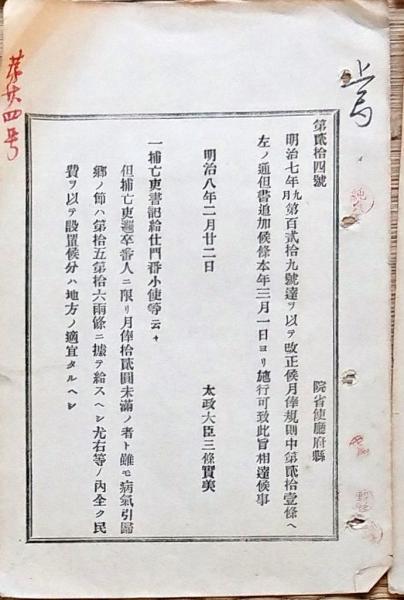 第貳拾四號
院省使廳府縣
明治七年九月第百貳拾九號達ヲ以テ改正候月俸規則中第貳拾壹條ヘ
左ノ通但書追加候條本年三月一日ヨリ施行可致此旨相達候事
明治八年二月廿二日
太政大臣三條實美
一捕亡吏書記給仕門番小使等云々
但捕亡吏邏卒番人ニ限リ月俸拾貳圓未滿ノ者ト雖モ病氣引歸
郷ノ節ハ第拾五第拾六兩條ニ據テ給スヘシ尤右等ノ內全ク民
費ヲ以テ設置候分ハ地方ノ適宜タルヘシ
第廿四号